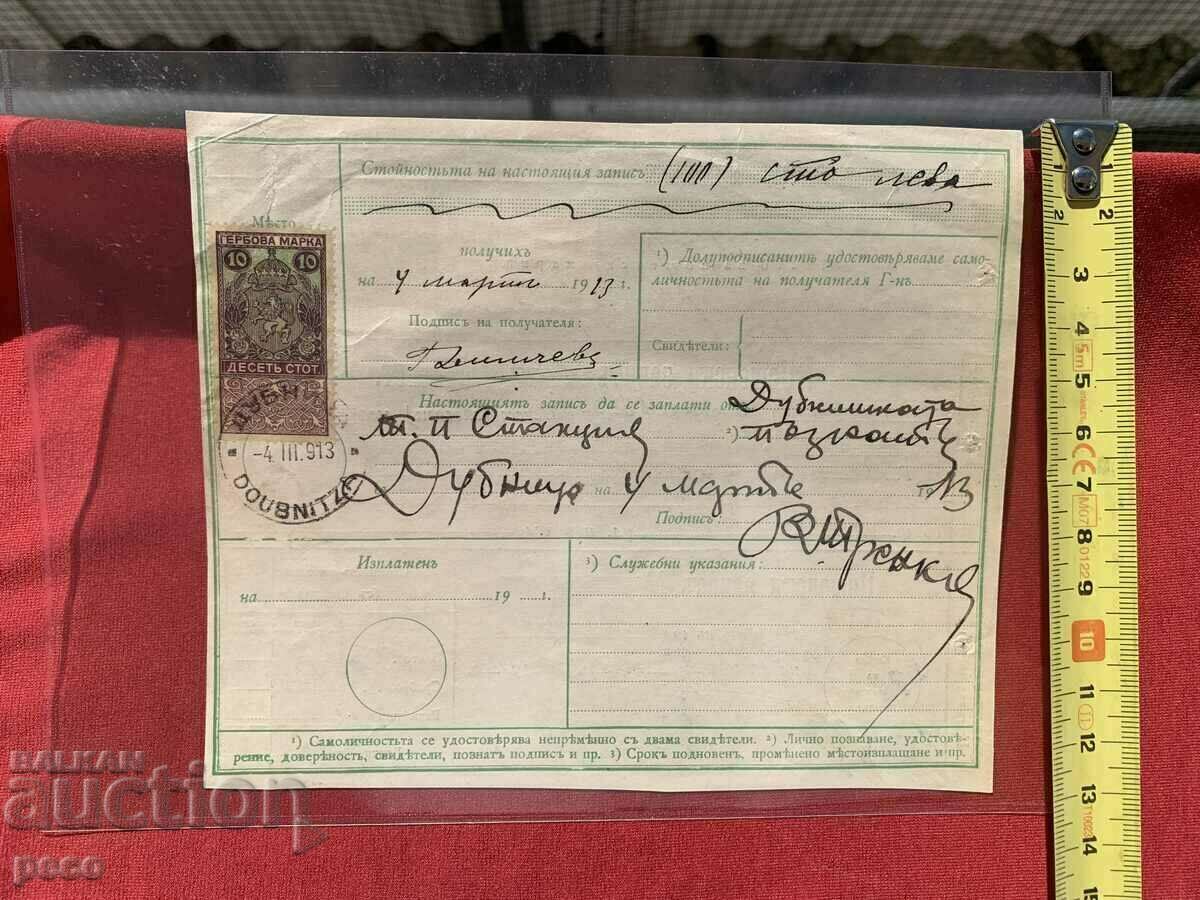 Стойностьта на настоящия записъ (100) сто лева
Мѣсто
ГЕРБОВА МАРКА
10 10
ДЕСЕТЬ СТОТ
ДУБНИЦА
-4.III.913
DOUBNITZA
получихъ
на 4 мартъ 1913 г.
Подпись на получателя:
¹) Долуподписанитѣ удостовѣряваме само-
личностьта на получателя Г-нъ
Свидѣтели:
Настоящиятъ записъ да се заплати отъ Дубнишката
Т. П. Станция ²)
Дубница на 4 мартъ 1913
Подпись:
Изплатенъ
на 19 г.
³) Служебни указания:
¹) Самоличностьта се удостовѣрява непрѣмѣнно съ двама свидѣтели. ²) Лично познаване, удостовѣ-
рение, довѣреность, свидѣтели, познатъ подпись и пр. ³) Срокъ подновенъ, промѣнено мѣстоизплащане и пр.
BALKAN
auction
peco
2 2
3
4
5m
5
6
CE
7
M07
0122
8
9
10
11
12
13
14
15